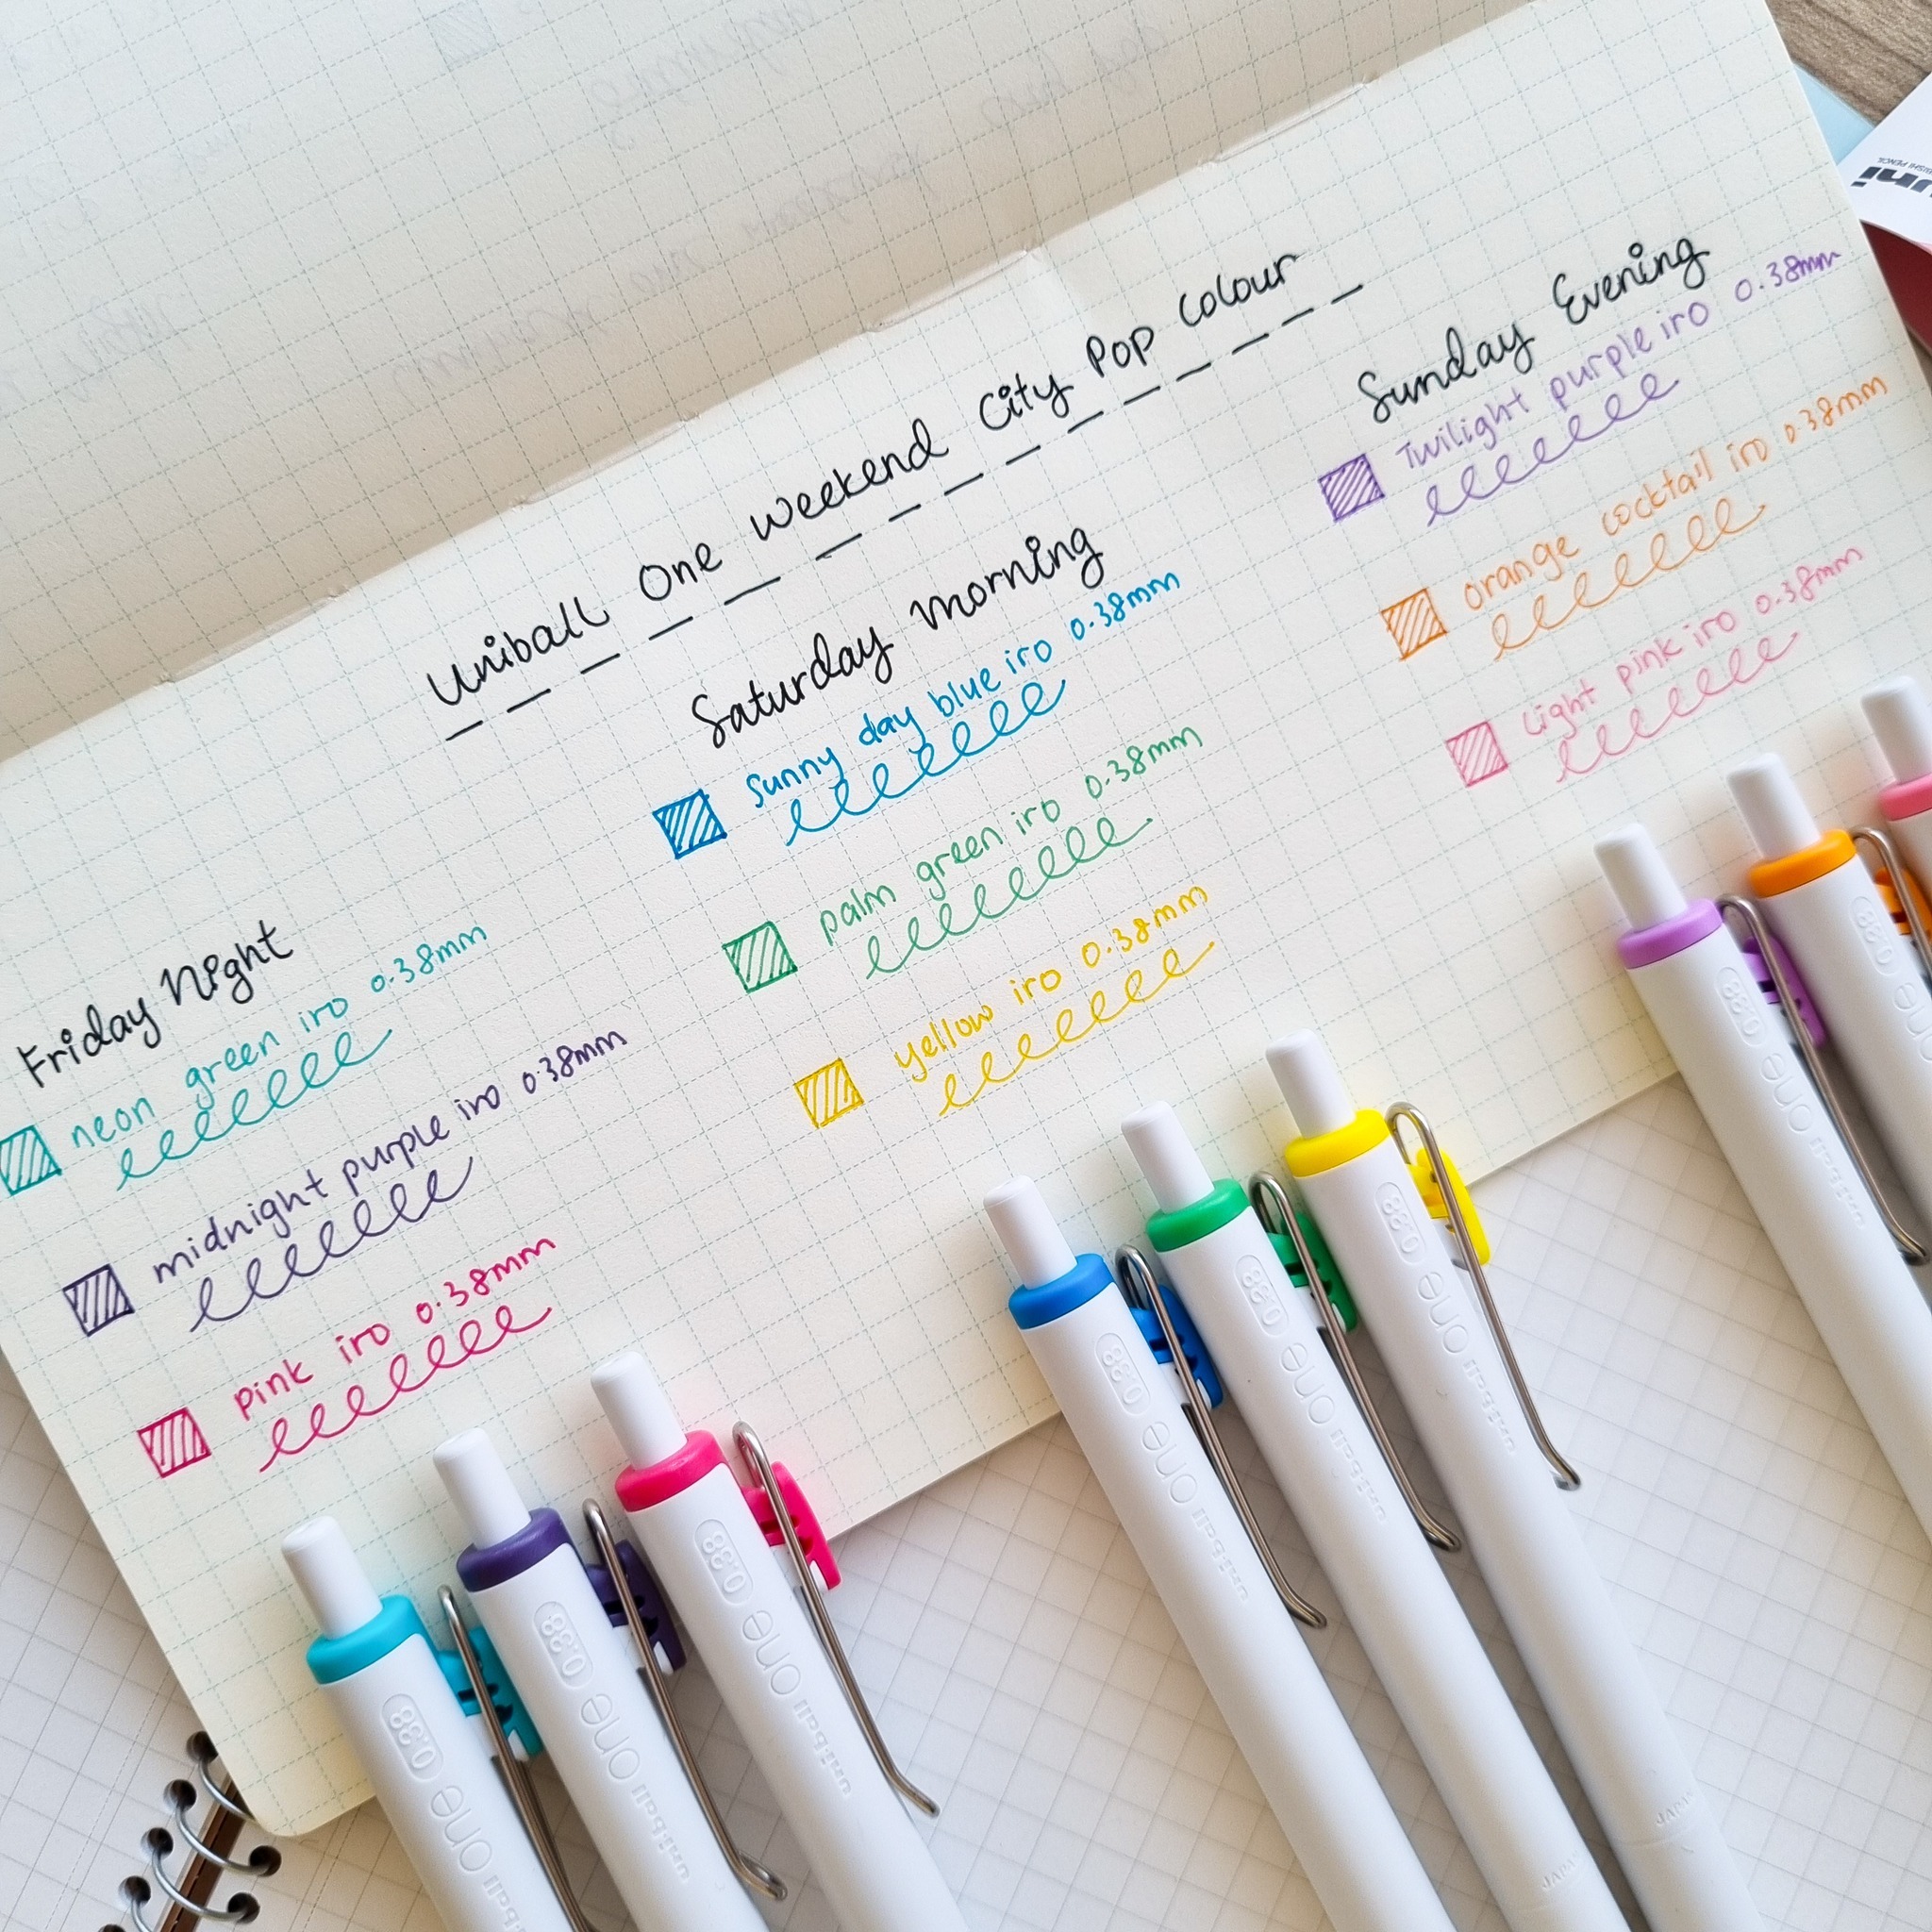 Uniball One Weekend City Pop Colour
Friday Night
neon green iro 0.38mm
midnight purple iro 0.38mm
pink iro 0.38mm
Saturday Morning
Sunny day blue iro 0.38mm
palm green iro 0.38mm
yellow iro 0.38mm
Sunday Evening
Twilight purple iro 0.38mm
orange cocktail iro 0.38mm
Light pink iro 0.38mm
0.38 one uniball
0.38 one uniball
0.38 one uniball
0.38 one uniball
0.38 one uniball
JAPAN
0.38 one uniball
JAPAN
0.38 one uniball
0.38 one
uni